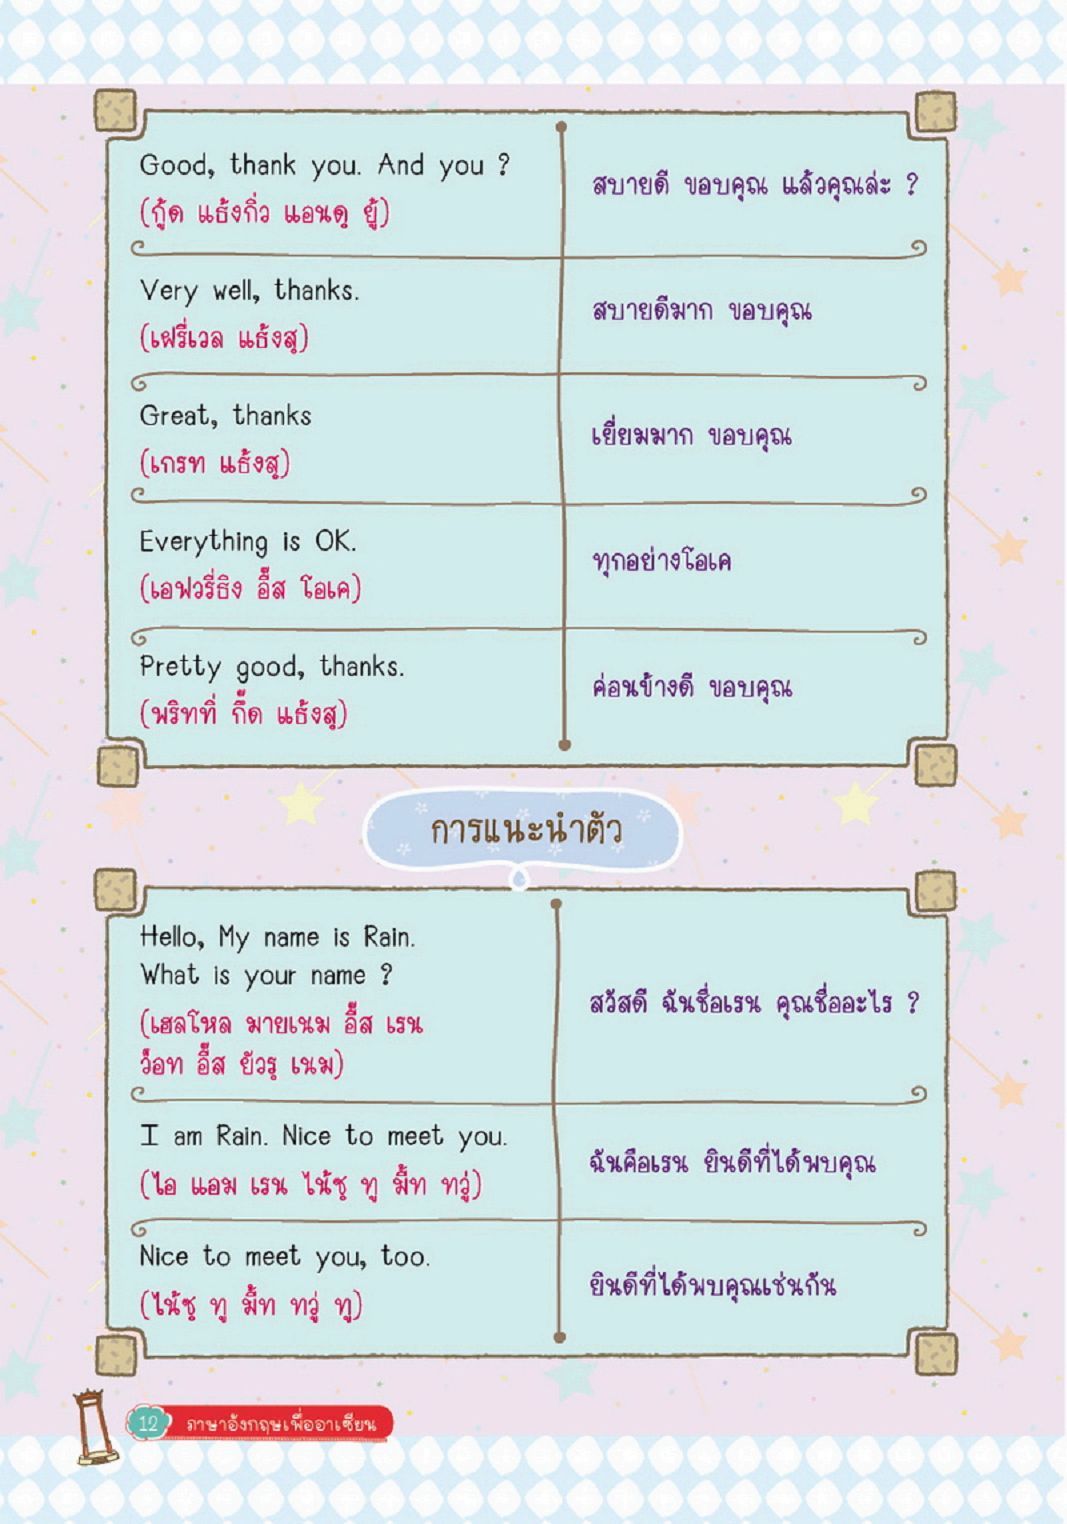 Good, thank you. And you ?
(กู้ด แธ้งกิ่ว แอนดฺ ยู้)
สบายดี ขอบคุณ แล้วคุณล่ะ ?
Very well, thanks.
(เฝรี่เวล แธ้งสฺ)
สบายดีมาก ขอบคุณ
Great, thanks
(เกรท แธ้งสฺ)
เยี่ยมมาก ขอบคุณ
Everything is OK.
(เอฟวรี่ธิง อี๊ส โอเค)
ทุกอย่างโอเค
Pretty good, thanks.
(พริทที่ กึ๊ด แธ้งสฺ)
ค่อนข้างดี ขอบคุณ
การแนะนำตัว
Hello, My name is Rain.
What is your name ?
(เฮลโหล มายเนม อี๊ส เรน
ว็อท อี๊ส ยัวรฺ เนม)
สวัสดี ฉันชื่อเรน คุณชื่ออะไร ?
I am Rain. Nice to meet you.
(ไอ แอม เรน ไน้ซฺ ทู มี้ท ทวู่)
ฉันคือเรน ยินดีที่ได้พบคุณ
Nice to meet you, too.
(ไน้ซฺ ทู มี้ท ทวู่ ทู)
ยินดีที่ได้พบคุณเช่นกัน
12 ภาษาอังกฤษเพื่ออาเซียน